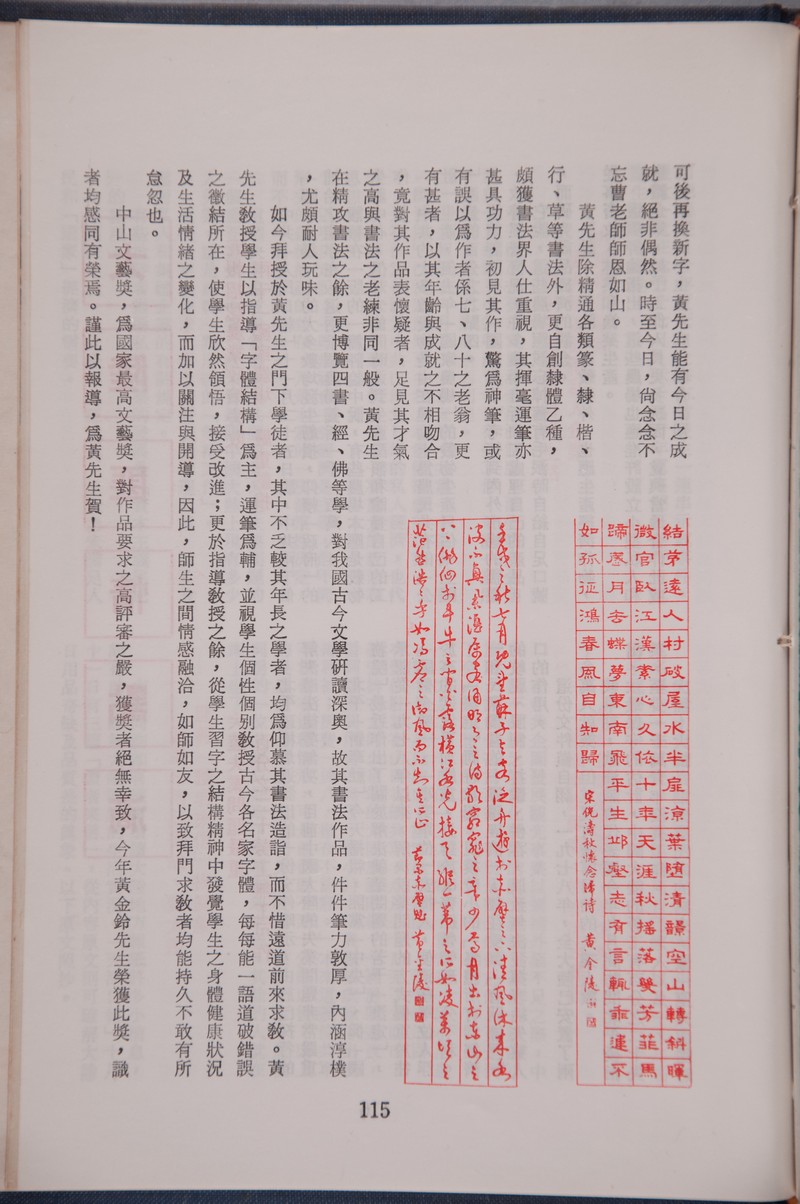 可後再換新字，黃先生能有今日之成
就，絕非偶然。時至今日，尙念念不
忘曹老師師恩如山。
黃先生除精通各類篆、隸、楷、
行、草等書法外，更自創隸體乙種，
頗獲書法界人仕重視，其揮毫運筆亦
甚具功力，初見其作，驚爲神筆，或
有誤以爲作者係七、八十之老翁，更
有甚者，以其年齡與成就之不相吻合
，竟對其作品表懷疑者，足見其才氣
之高與書法之老練非同一般。黃先生
在精攻書法之餘，更博覽四書、經、佛等學，對我國古今文學硏讀深奧，故其書法作品，件件筆力敦厚，內涵淳樸
，尤頗耐人玩味。
如今拜授於黃先生之門下學徒者，其中不乏較其年長之學者，均爲仰慕其書法造詣，而不惜遠道前來求敎。黃
先生敎授學生以指導「字體結構」爲主，運筆爲輔，並視學生個性個別敎授古今各名家字體，每每能一語道破錯誤
之徵結所在，使學生欣然領悟，接受改進；更於指導敎授之餘，從學生習字之結構精神中發覺學生之身體健康狀況
及生活情緒之變化，而加以關注與開導，因此，師生之間情感融洽，如師如友，以致拜門求敎者均能持久不敢有所
怠忽也。
中山文藝獎，爲國家最高文藝獎，對作品要求之高評審之嚴，獲獎者絕無幸致，今年黃金鈴先生榮獲此獎，識
者均感同有榮焉。謹此以報導，爲黃先生賀！
結茅遠人村破屋水半扉涼葉墮清韻空山轉斜暉
微官臥江漢素心久依十年天涯秋搖落變芳菲馬
蹄月去蝶夢東南飛平生邱壑志有言輒乖違不
如孤征鴻春風自知歸
壬戌之秋七月既望蘇子與客泛舟遊於赤壁之下清風徐來水
波不興
月出於東山之
白露橫江水光接天縱一葦之所如凌萬頃之
茫然浩浩乎如馮虛御風而不知其所止
115